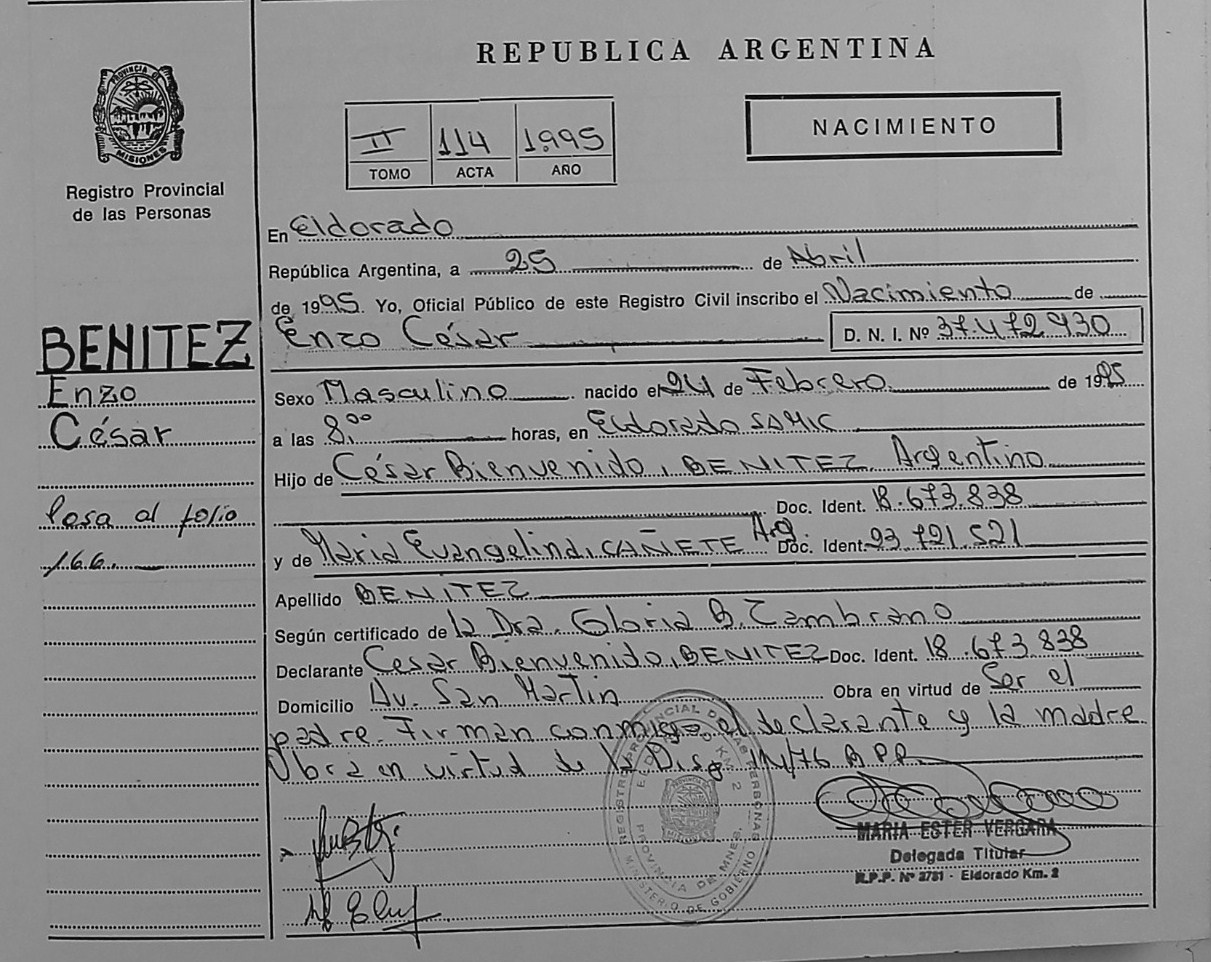 REPUBLICA ARGENTINA
PROVINCIA DE MISIONES
Registro Provincial
de las Personas
II 114 1.995
TOMO ACTA AÑO
NACIMIENTO
En Eldorado
República Argentina, a 25 de Abril
de 1995. Yo, Oficial Público de este Registro Civil inscribo el Nacimiento de
Enzo César D. N. I. Nº 37.472.930
Sexo Masculino nacido el 24 de Febrero de 1995
a las 8,00 horas, en Eldorado SAMIC
Hijo de César Bienvenido, BENITEZ, Argentino
Doc. Ident. 18.673.838
y de Maria Evangelina, CAÑETE Arg. Doc. Ident. 93.721.521
Apellido BENITEZ
Según certificado de la Dra. Gloria B. Zambrano
Declarante Cesar Bienvenido, BENITEZ Doc. Ident. 18.673.838
Domicilio Av. San Martin Obra en virtud de Ser el
padre. Firman conmigo el declarante y la madre
Obra en virtud de la Disp. 14/76 R.P.P.
BENITEZ
Enzo
César
Pasa al folio
166.
REGISTRO PROVINCIAL DE LAS PERSONAS
ELDORADO KM. 2
PROVINCIA DE MNES.
MINISTERIO DE GOBIERNO
MARIA ESTER VERGARA
Delegada Titular
R.P.P. Nº 2781 - Eldorado Km. 2